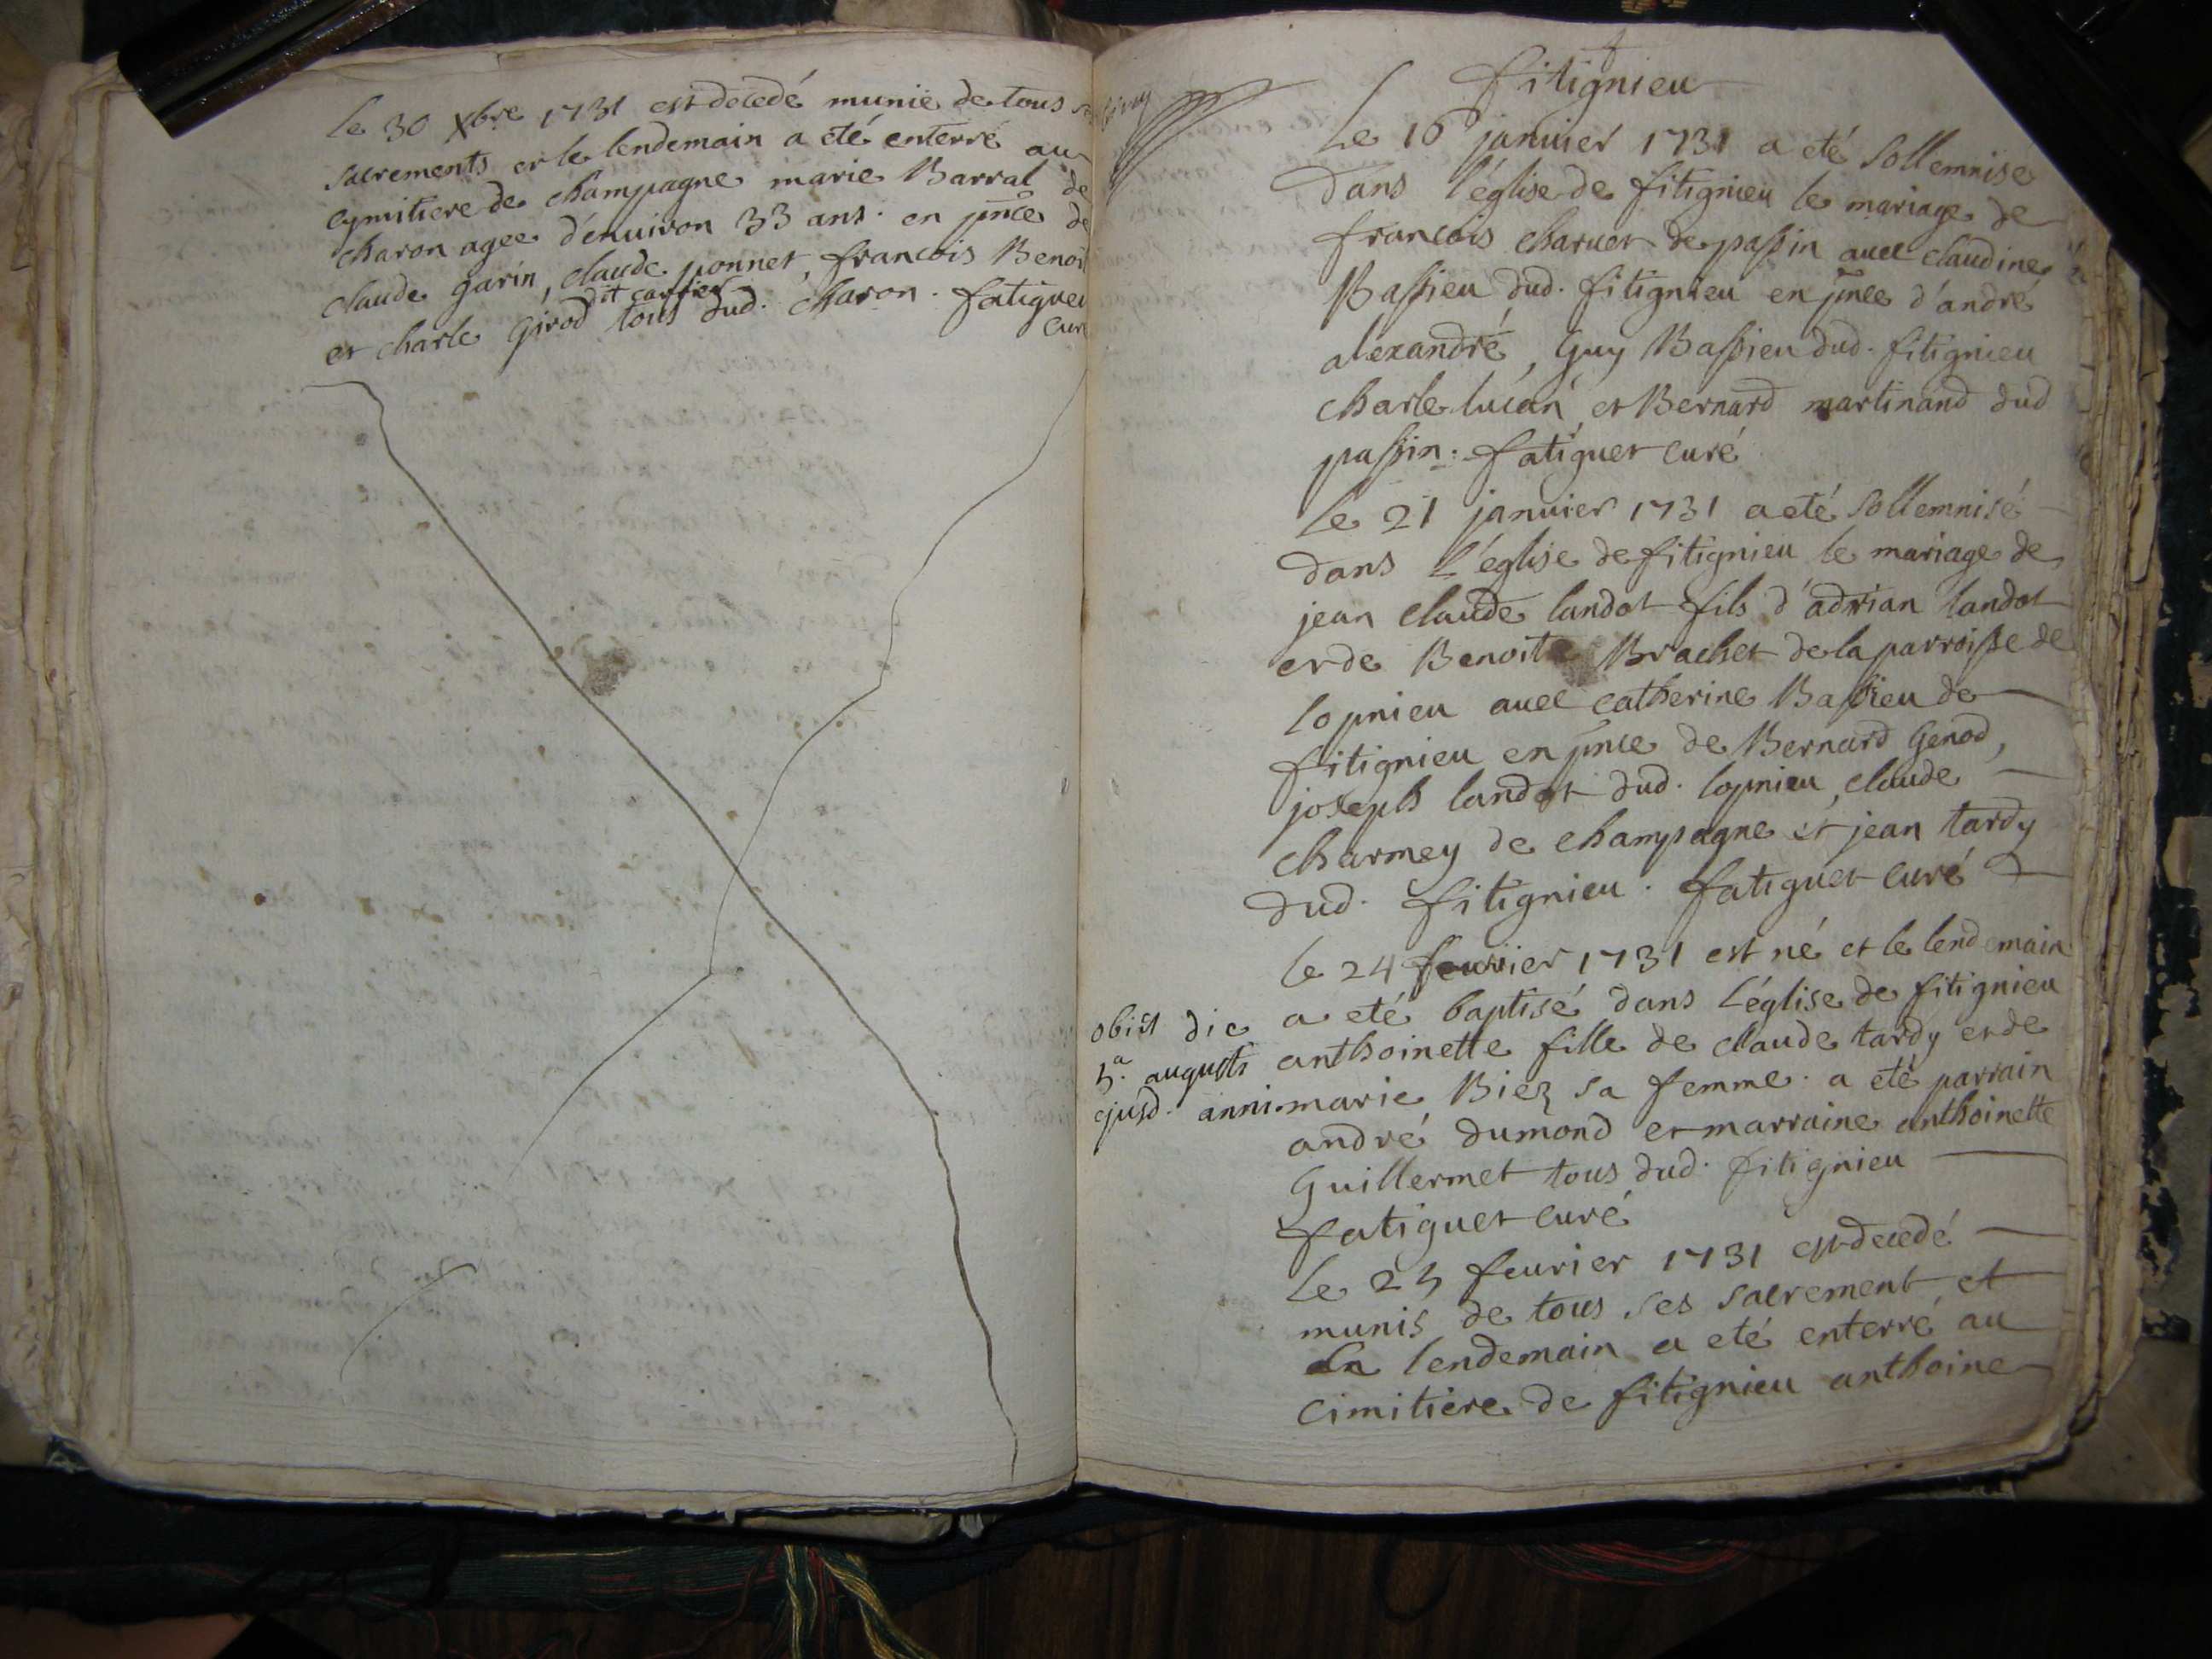 le 30 Xbre 1731 est decedé munie de tous
sacrements et le lendemain a eté enterré au
cymitiere de champagne marie Barral de
charon agee d'enuiron 33 ans. en pnce de
claude garin, claude ponnet, francois Benoi
dit carrier
et charle girod tous dud. charon. fatigue
cur
fitignieu
Le 16 januier 1731 a eté sollemnise
dans l'église de fitignieu le mariage de
francois charuet de passin auec claudine
Bassieu dud. fitignieu en pnce d'andré
alexandré, Guy Bassieu dud. fitignieu
charle lucan et Bernard martinand dud
passin. fatiguet curé
le 21 januier 1731 a eté sollemnisé
dans l'église de fitignieu le mariage de
jean claude landot fils d'adrian landot
et de Benoite Brachet de la parroisse de
lopnieu auec catherine Bassieu de
fitignieu en pnce de Bernard Genod,
joseph landot dud. lopnieu, claude
charmey de champagne et jean tardy
dud. fitignieu. fatiguet curé
le 24 feurier 1731 est né et le lendemain
a eté baptisé dans l'église de fitignieu
anthoinette fille de claude tardy et de
marie Biez sa femme. a eté parrain
andré dumond et marraine anthoinette
Guillermet tous dud. fitignieu
fatiguet curé
obiit die
5a. augusti
ejusd. anni.
le 25 feurier 1731 est decedé
munis de tous ses sacrement et
le lendemain a eté enterré au
cimitiere de fitignieu anthoine